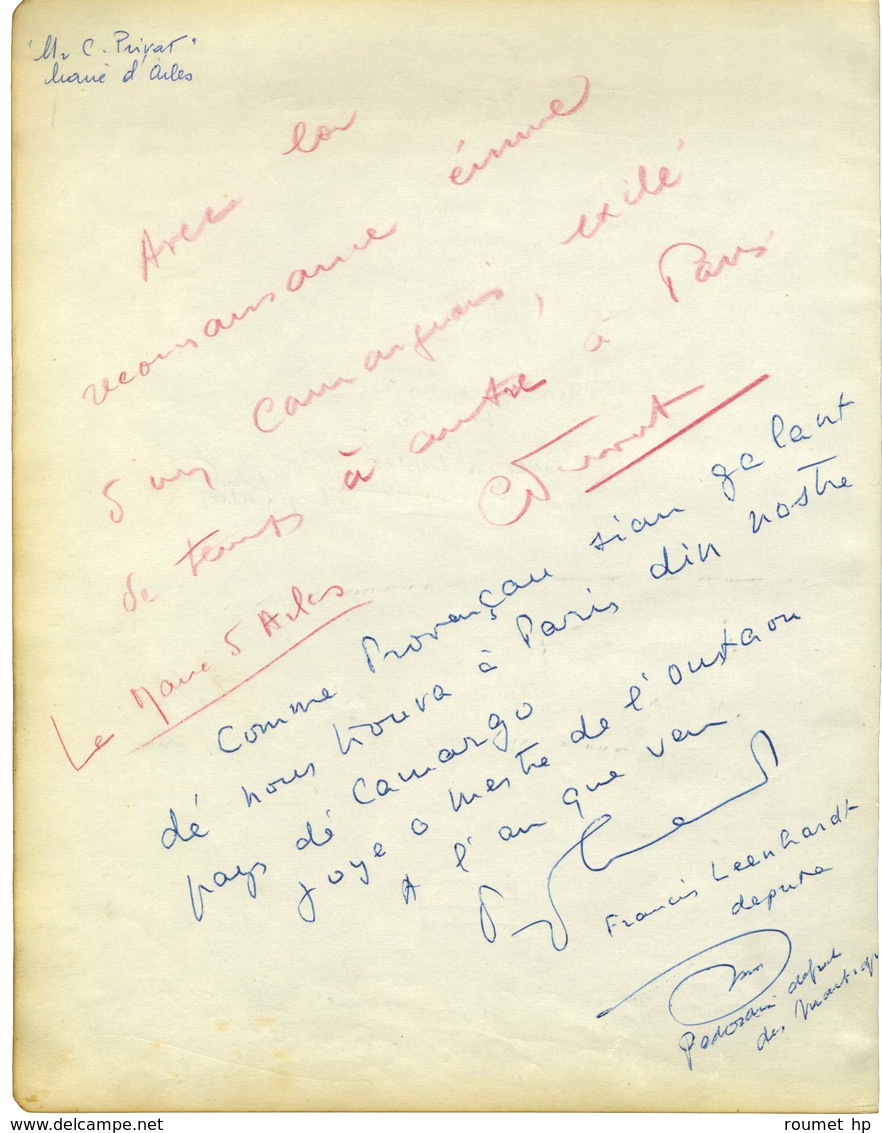 "Mr C. Privat"
Maire d'Arles
Avec la
reconnaissance émue
d'un camarguais, exilé
de temps à autre à Paris
CPrivat
Le Maire d'Arles
Comme Provençau sian galant
dé nous trouva à Paris din nostre
pays dé Camargo
Joye o mestre de l'Oustaou
A l'an que ven
Francis Leenhardt
depute
député
des Martigues
roumet hp